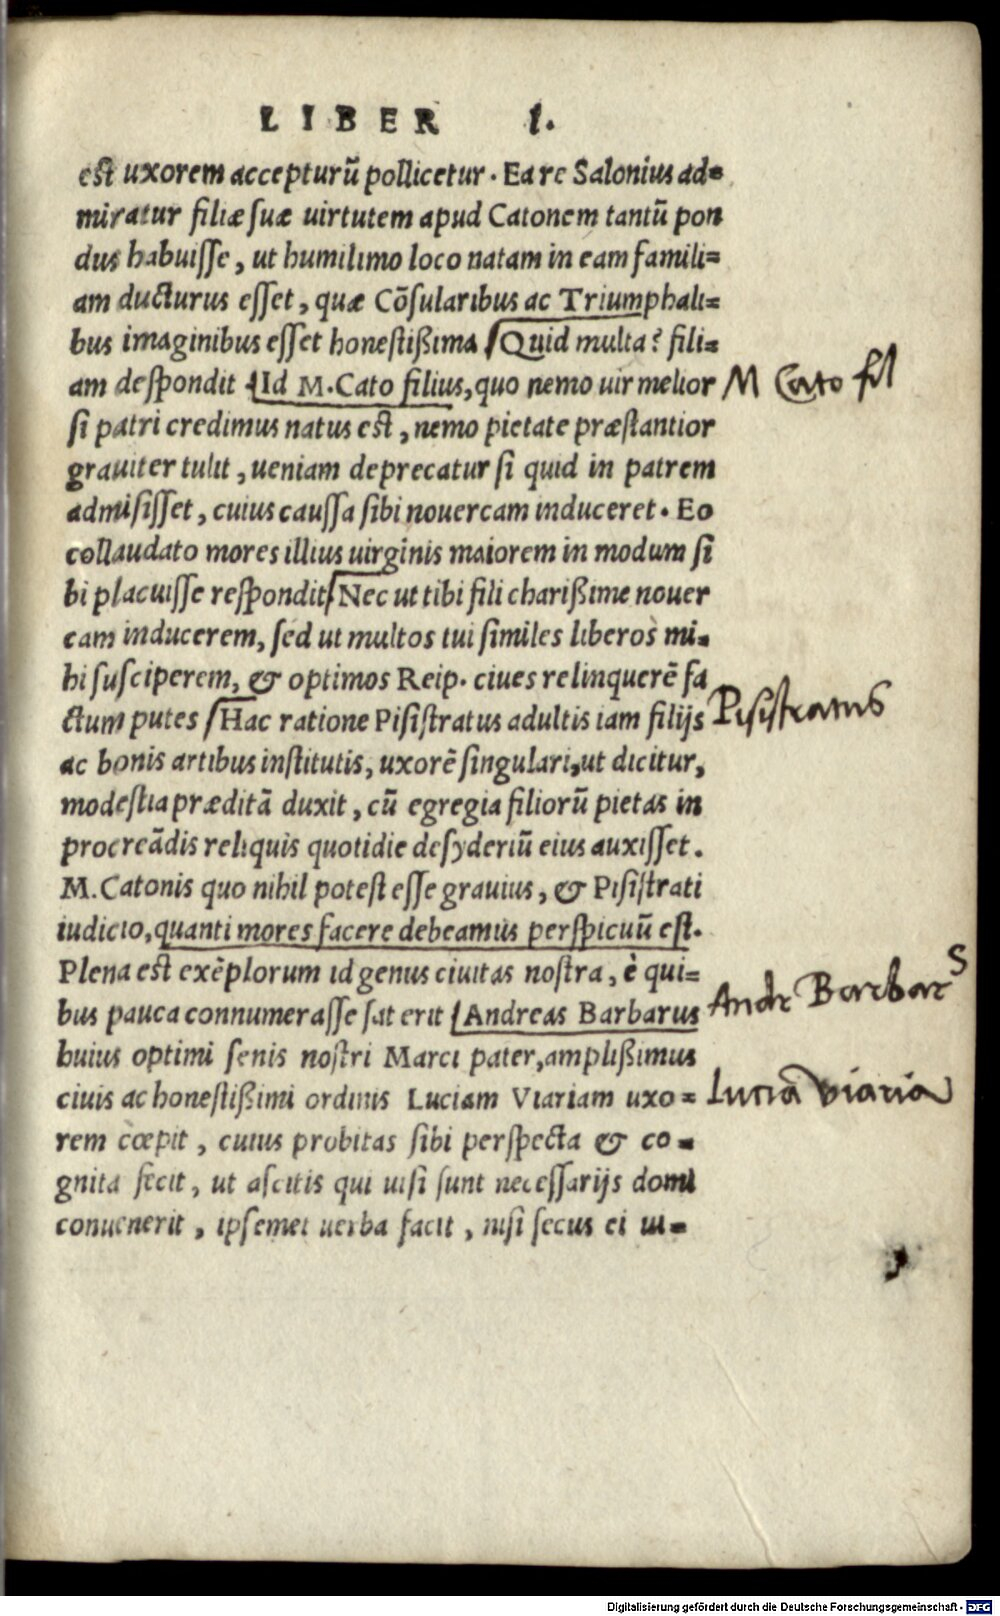 LIBER I.
est uxorem accepturũ pollicetur. Ea re Salonius ad=
miratur filiæ suæ uirtutem apud Catonem tantũ pon
dus habuisse, ut humilimo loco natam in eam famili=
am ducturus esset, quæ Cõsularibus ac Triumphali=
bus imaginibus esset honestißima Quid multa? fili=
am despondit Id M. Cato filius, quo nemo uir melior
M Cato fil
si patri credimus natus est, nemo pietate præstantior
grauiter tulit, ueniam deprecatur si quid in patrem
admisisset, cuius caussa sibi nouercam induceret. Eo
collaudato mores illius uirginis maiorem in modum si
bi placuisse respondit Nec ut tibi fili charißime nouer
cam inducerem, sed ut multos tui similes liberos mi=
hi susciperem, & optimos Reip. ciues relinquerẽ fa
ctum putes Hac ratione Pisistratus adultis iam filijs
Pisistratus
ac bonis artibus institutis, uxorẽ singulari, ut dicitur,
modestia præditã duxit, cũ egregia filiorũ pietas in
procreãdis reliquis quotidie desyderiũ eius auxisset.
M. Catonis quo nihil potest esse grauius, & Pisistrati
iudicio, quanti mores facere debeamus perspicuũ est.
Plena est exẽplorum id genus ciuitas nostra, è qui=
bus pauca connumerasse sat erit Andreas Barbarus
Andr Barbar s
huius optimi senis nostri Marci pater, amplißimus
ciuis ac honestißimi ordinis Luciam Viariam uxo=
Lucia viaria
rem cœpit, cuius probitas sibi perspecta & co=
gnita fecit, ut ascitis qui uisi sunt necessarijs domi
conuenerit, ipsemet uerba facit, nisi secus ei ui=
Digitalisierung gefördert durch die Deutsche Forschungsgemeinschaft - DFG